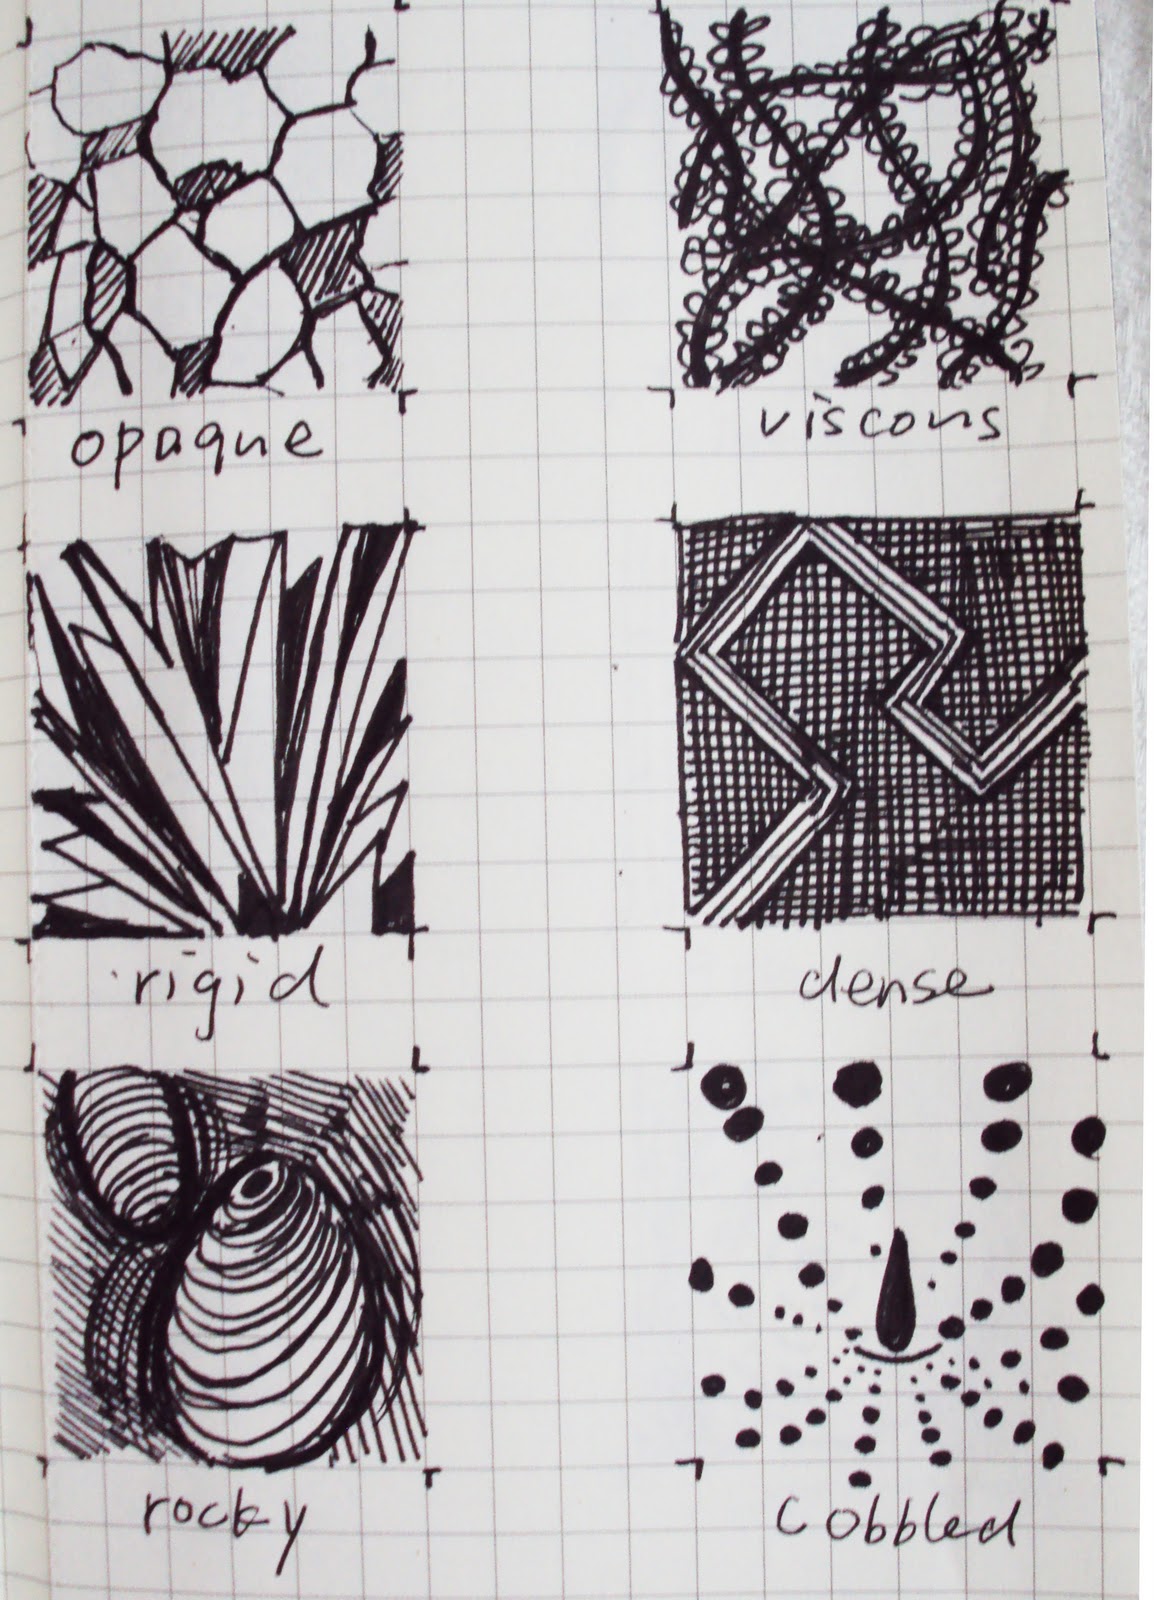 opaque
viscous
rigid
dense
rocky
cobbled